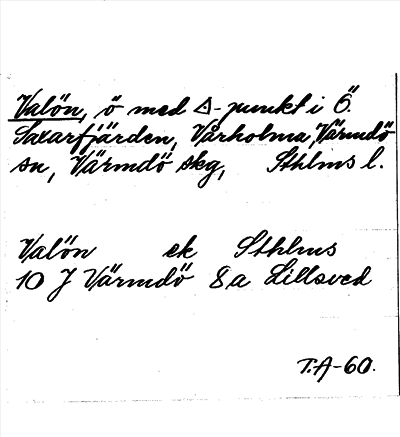 Valön, ö med △-punkt i Ö.
Saxarfjärden, Vårholma, Värmdö
sn, Värmdö skg, Sthlms l.
Valön ek Sthlms
10 J Värmdö 8a Lillsved
T.A-60.